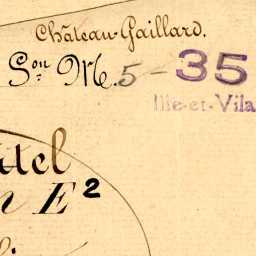 Château-Gaillard.
Son M. 5 - 35
Ille-et-Vila
tel
n E²